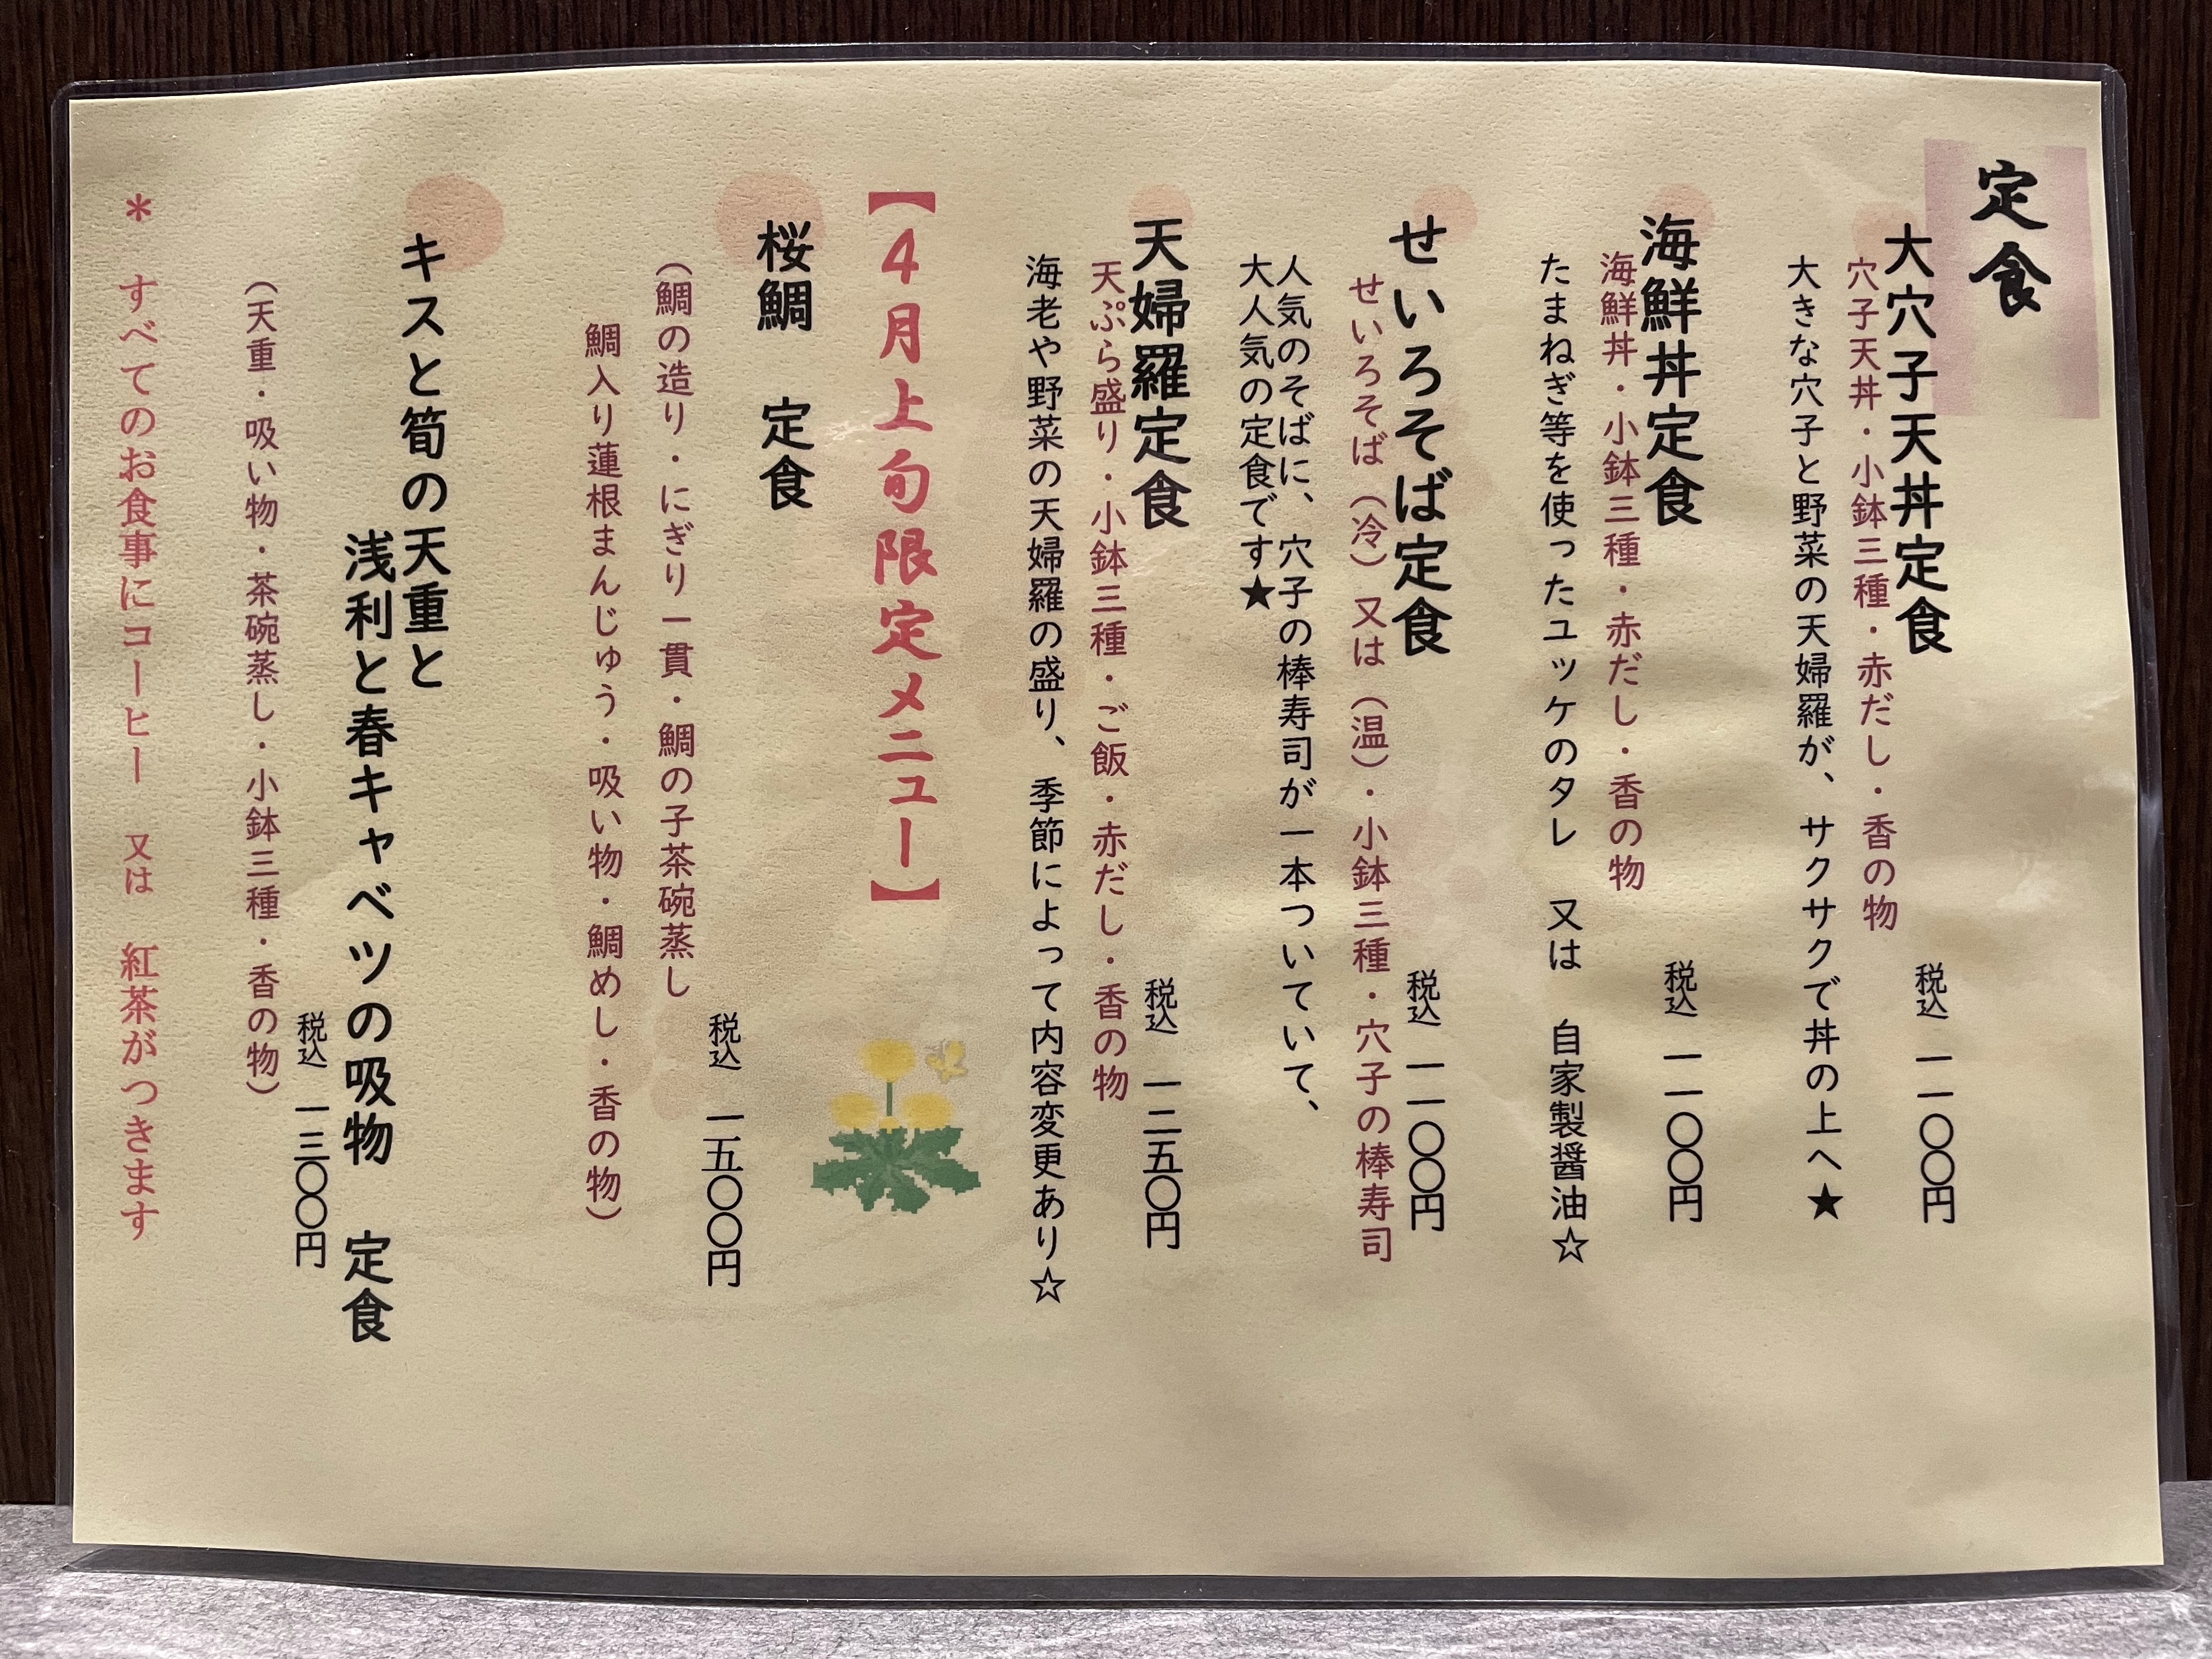 定食
大穴子天丼定食
穴子天丼・小鉢三種・赤だし・香の物
税込 一一〇〇円
大きな穴子と野菜の天婦羅が、サクサクで丼の上へ★
海鮮丼定食
海鮮丼・小鉢三種・赤だし・香の物
税込 一一〇〇円
たまねぎ等を使ったユッケのタレ 又は 自家製醤油☆
せいろそば定食
せいろそば（冷）又は（温）・小鉢三種・穴子の棒寿司
税込 一一〇〇円
人気のそばに、穴子の棒寿司が一本ついていて、
大人気の定食です★
天婦羅定食
天ぷら盛り・小鉢三種・ご飯・赤だし・香の物
税込 一二五〇円
海老や野菜の天婦羅の盛り、季節によって内容変更あり☆
【４月上旬限定メニュー】
桜鯛 定食
税込 一五〇〇円
（鯛の造り・にぎり一貫・鯛の子茶碗蒸し
鯛入り蓮根まんじゅう・吸い物・鯛めし・香の物）
キスと筍の天重と
浅利と春キャベツの吸物 定食
税込 一三〇〇円
（天重・吸い物・茶碗蒸し・小鉢三種・香の物）
＊ すべてのお食事にコーヒー 又は 紅茶がつきます